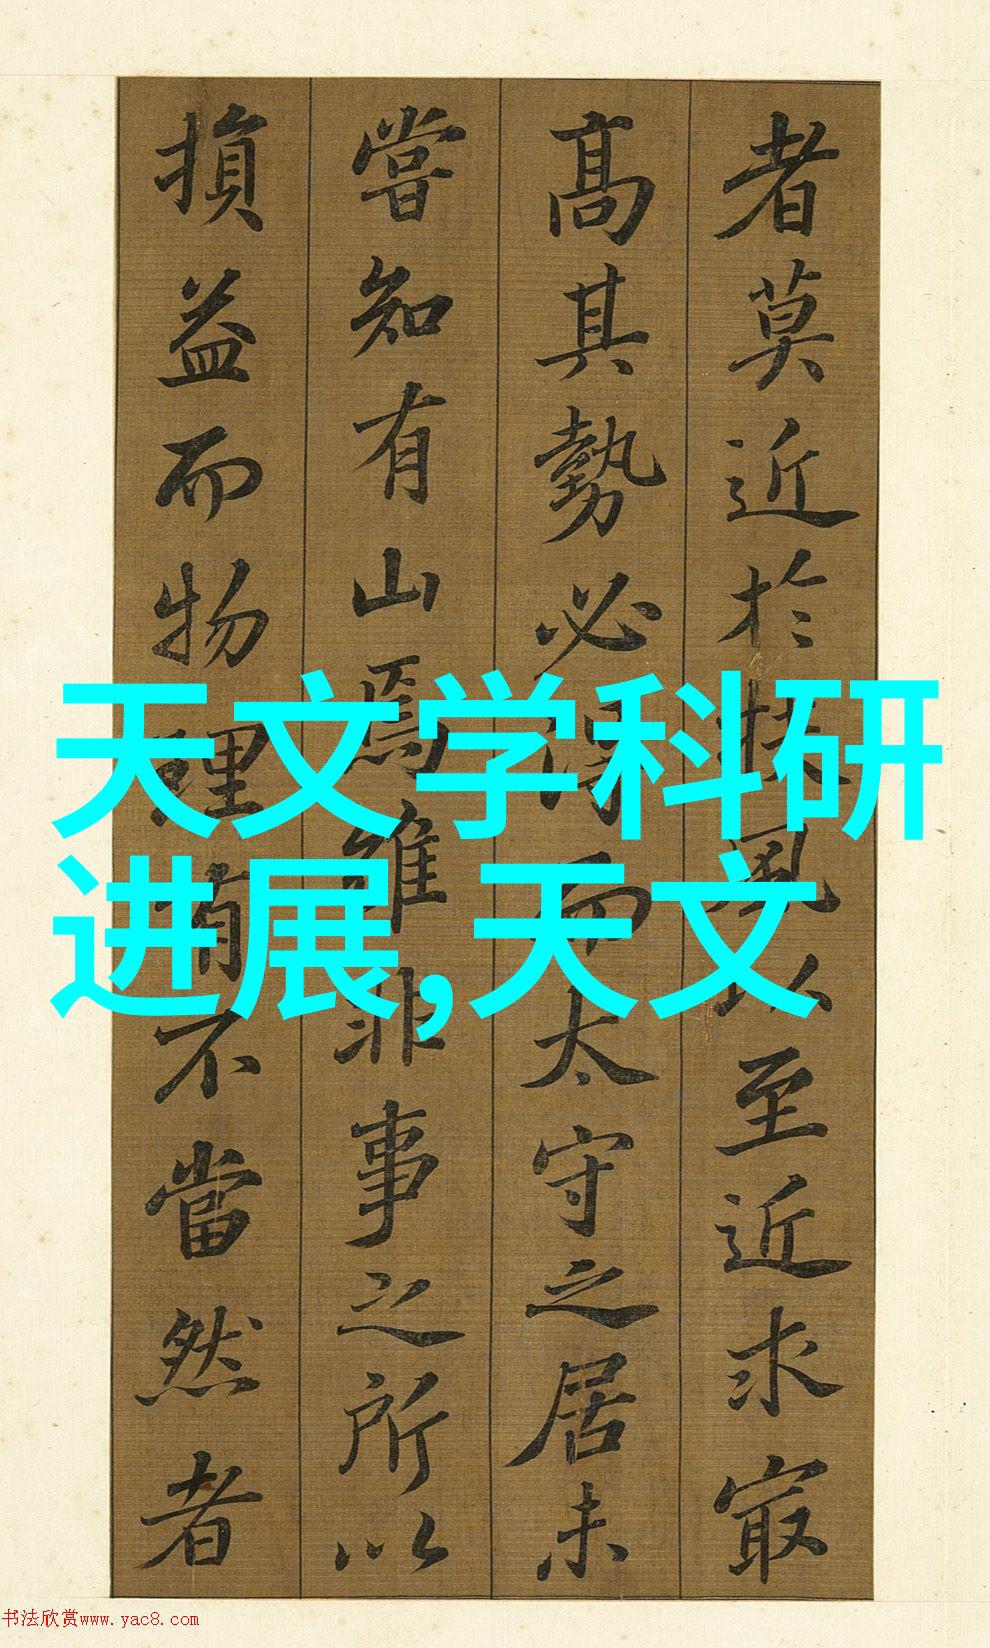 者莫近於扶風以至近求冣
高其勢必得而太守之居未
嘗知有山焉雖非事之所以
損益而物理有不當然者
天文学科研
进展,天文
书法欣赏www.yac8.com